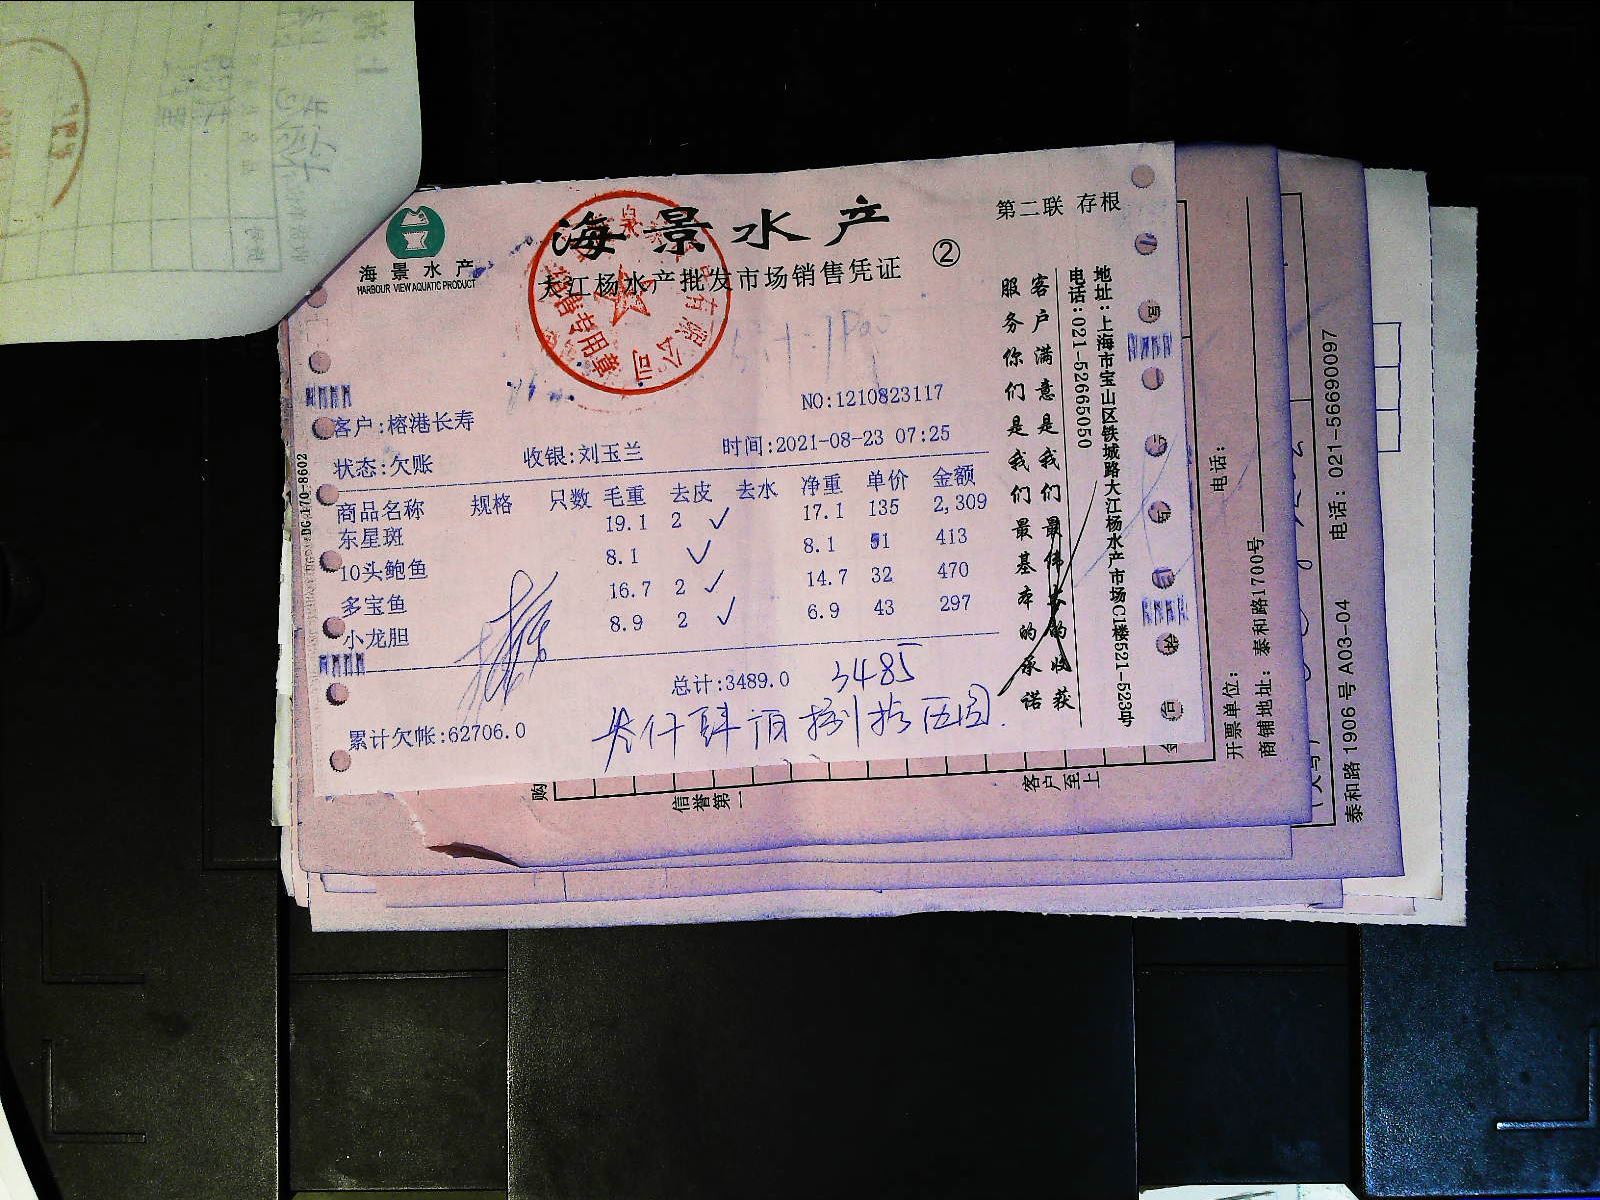 第二联 存根
海景水产
海景水产
HARBOUR VIEW AQUATIC PRODUCT
大江杨水产批发市场销售凭证 ②
有限公司
销售专用章
NO:1210823117
客户:榕港长寿
状态:欠账 收银:刘玉兰 时间:2021-08-23 07:25
商品名称 规格 只数 毛重 去皮 去水 净重 单价 金额
东星斑 19.1 2 ✓ 17.1 135 2,309
10头鲍鱼 8.1 ✓ 8.1 51 413
多宝鱼 16.7 2 ✓ 14.7 32 470
小龙胆 8.9 2 ✓ 6.9 43 297
总计:3489.0 3485
累计欠帐:62706.0
叁仟肆佰捌拾伍圆.
客户满意是我们最伟大的收获
服务你们是我们最基本的承诺
地址:上海市宝山区铁城路大江杨水产市场C1楼521-523号
电话:021-52665050
购
信誉第一
客户至上
电话:
开票单位:
商铺地址:泰和路1700号
泰和路 1906 号 A03-04 电话:021-56690097